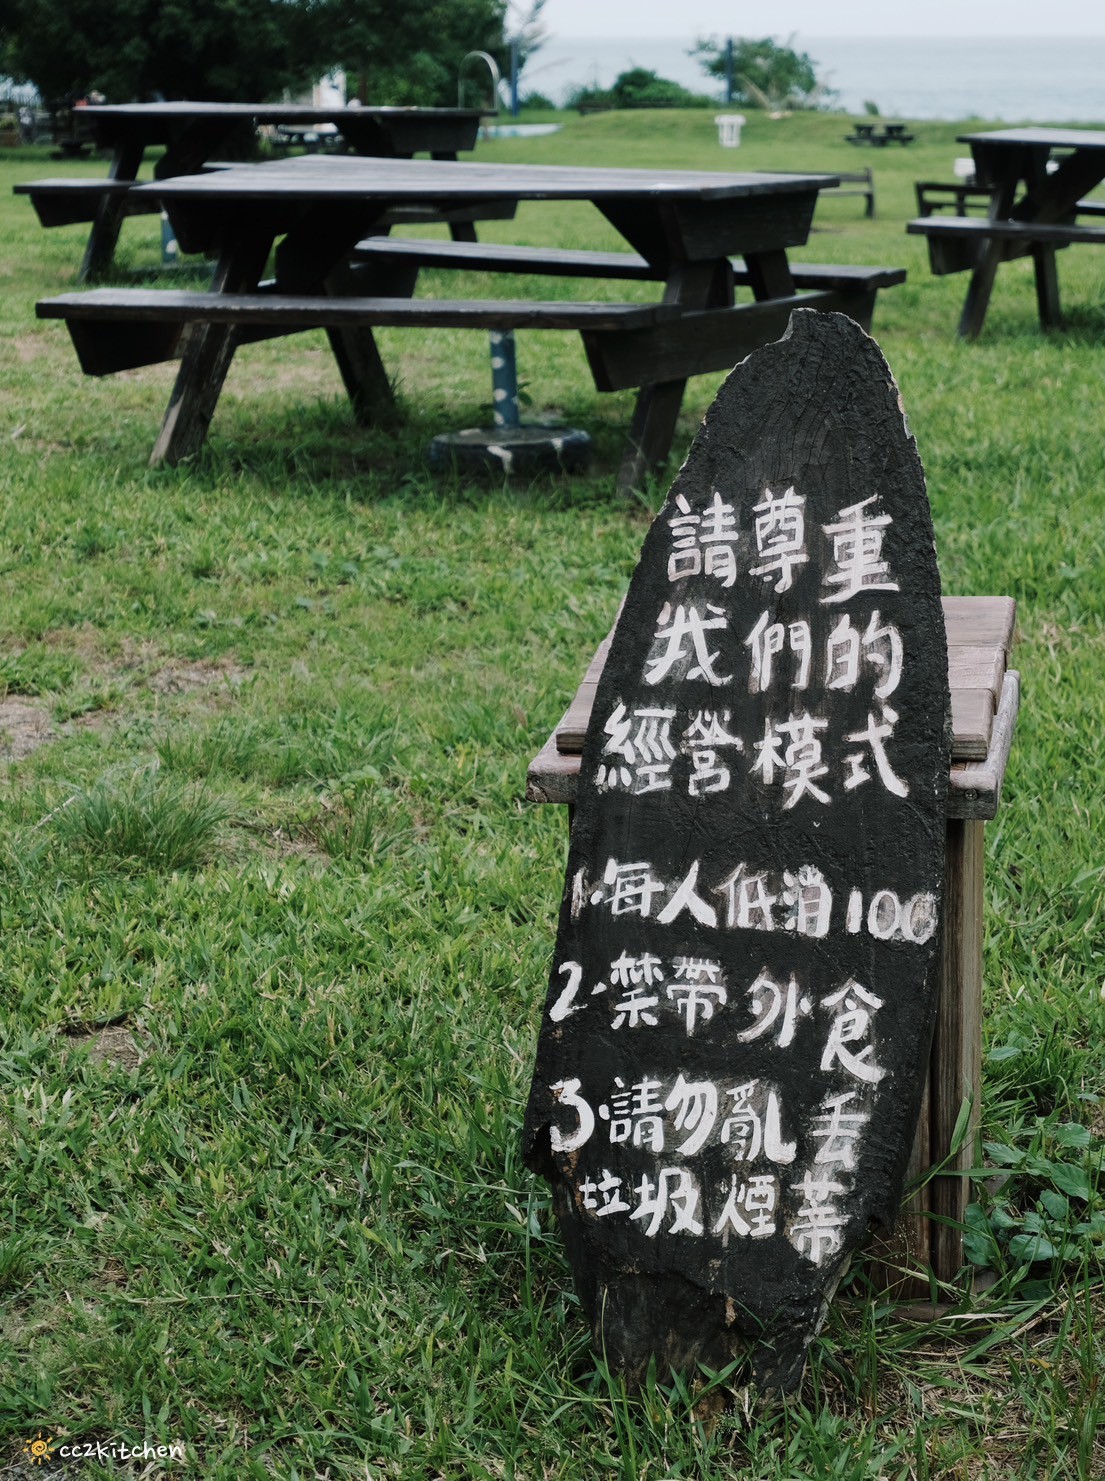 請尊重
我們的
經營模式
1.每人低消100
2.禁帶外食
3.請勿亂丟
垃圾煙蒂
cc2kitchen